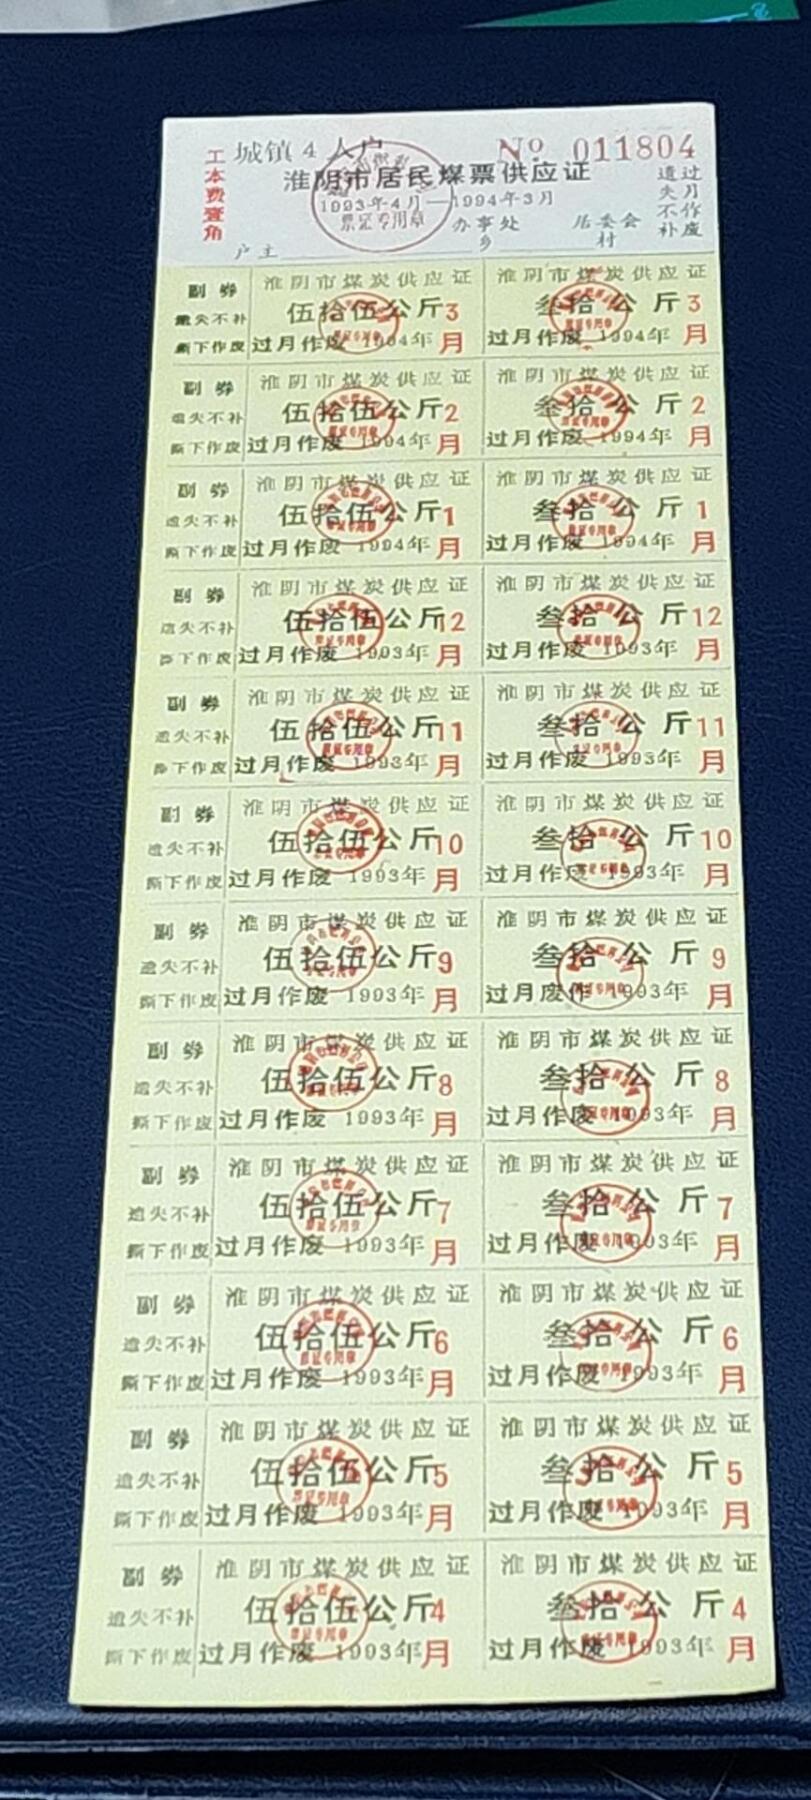 工本费壹角
城镇4人户
No 011804
淮阴市居民煤票供应证
1993年4月—1994年3月
票证专用章
过月作废
遗失不补
户主
办事处
乡
居委会
村
副券 淮阴市煤炭供应证 淮阴市煤炭供应证
遗失不补 伍拾伍公斤 3月 叁拾公斤 3月
撕下作废 过月作废 1994年 过月作废 1994年
副券 淮阴市煤炭供应证 淮阴市煤炭供应证
遗失不补 伍拾伍公斤 2月 叁拾公斤 2月
撕下作废 过月作废 1994年 过月作废 1994年
副券 淮阴市煤炭供应证 淮阴市煤炭供应证
遗失不补 伍拾伍公斤 1月 叁拾公斤 1月
撕下作废 过月作废 1994年 过月作废 1994年
副券 淮阴市煤炭供应证 淮阴市煤炭供应证
遗失不补 伍拾伍公斤 12月 叁拾公斤 12月
撕下作废 过月作废 1993年 过月作废 1993年
副券 淮阴市煤炭供应证 淮阴市煤炭供应证
遗失不补 伍拾伍公斤 11月 叁拾公斤 11月
撕下作废 过月作废 1993年 过月作废 1993年
副券 淮阴市煤炭供应证 淮阴市煤炭供应证
遗失不补 伍拾伍公斤 10月 叁拾公斤 10月
撕下作废 过月作废 1993年 过月作废 1993年
副券 淮阴市煤炭供应证 淮阴市煤炭供应证
遗失不补 伍拾伍公斤 9月 叁拾公斤 9月
撕下作废 过月作废 1993年 过月废作 1993年
副券 淮阴市煤炭供应证 淮阴市煤炭供应证
遗失不补 伍拾伍公斤 8月 叁拾公斤 8月
撕下作废 过月作废 1993年 过月作废 1993年
副券 淮阴市煤炭供应证 淮阴市煤炭供应证
遗失不补 伍拾伍公斤 7月 叁拾公斤 7月
撕下作废 过月作废 1993年 过月作废 1993年
副券 淮阴市煤炭供应证 淮阴市煤炭供应证
遗失不补 伍拾伍公斤 6月 叁拾公斤 6月
撕下作废 过月作废 1993年 过月作废 1993年
副券 淮阴市煤炭供应证 淮阴市煤炭供应证
遗失不补 伍拾伍公斤 5月 叁拾公斤 5月
撕下作废 过月作废 1993年 过月作废 1993年
副券 淮阴市煤炭供应证 淮阴市煤炭供应证
遗失不补 伍拾伍公斤 4月 叁拾公斤 4月
撕下作废 过月作废 1993年 过月作废 1993年